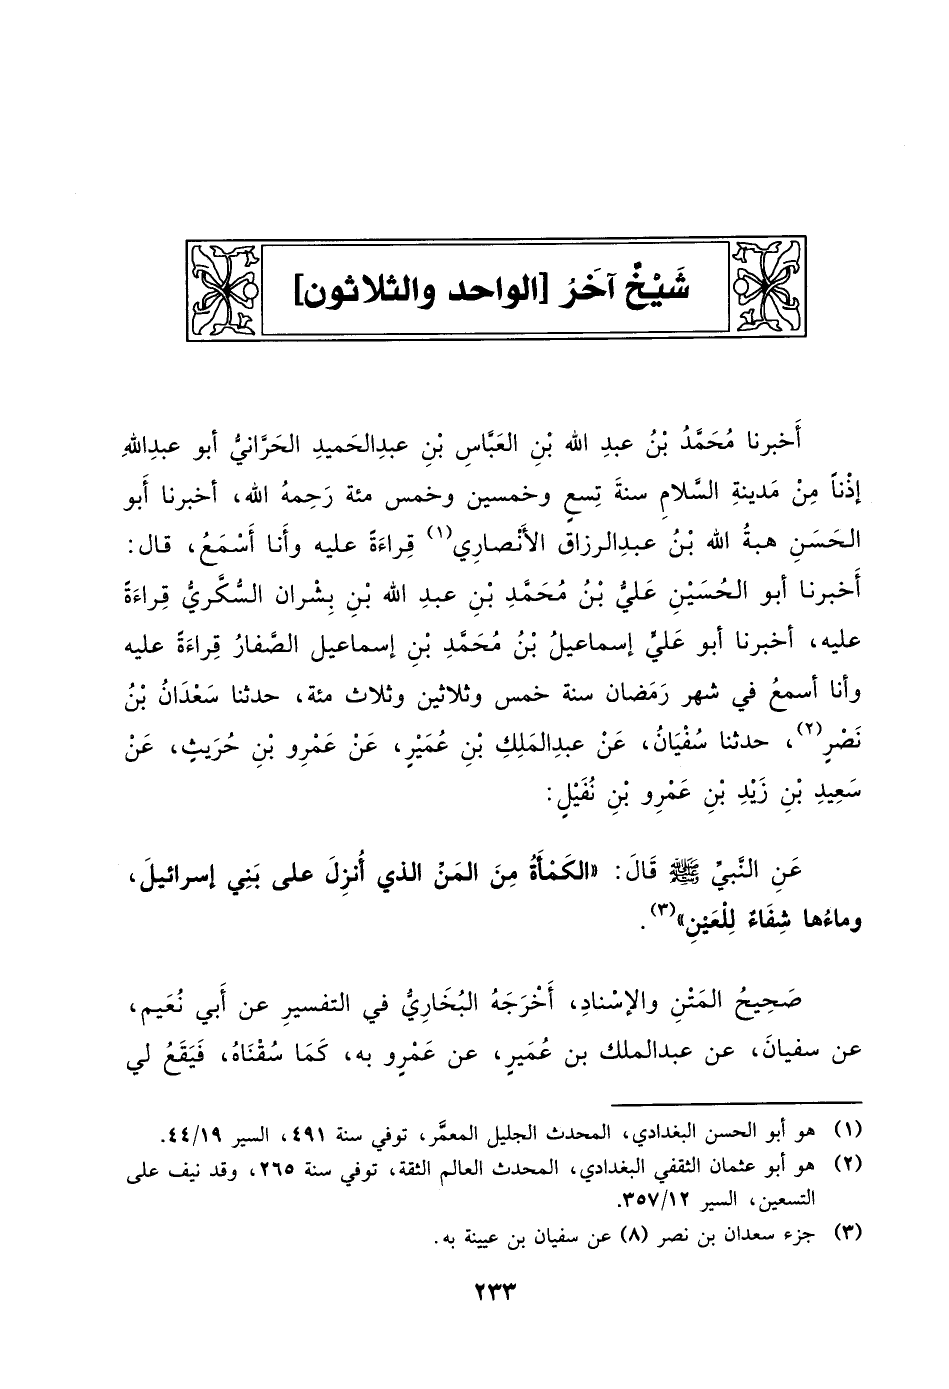 شَيْخٌ آخَرُ [الواحد والثلاثون]
أَخبرنا مُحَمَّدُ بْنُ عبدِ الله بْنِ العَبَّاسِ بْنِ عبدِالحَميدِ الحَرَّانيُّ أبو عبدِاللهِ
إذْناً مِنْ مَدينةِ السَّلامِ سنةَ تِسعٍ وخمسين وخمس مئة رَحِمهُ الله، أخبرنا أَبو
الحَسَنِ هبةُ الله بْنُ عبدِالرزاق الأَنْصارِي(١) قِراءَةً عليه وأَنا أَسْمَعُ، قال:
أَخبرنا أبو الحُسَيْنِ عَليُّ بْنُ مُحَمَّدِ بْنِ عبدِ الله بْنِ بِشْران السُّكَّريُّ قِراءَةً
عليه، أخبرنا أبو عَليٍّ إسماعيلُ بْنُ مُحَمَّدِ بْنِ إسماعيل الصَّفارُ قِراءَةً عليه
وأنا أسمعُ في شهر رَمَضان سنة خمس وثلاثين وثلاث مئة، حدثنا سَعْدَانُ بْنُ
نَصْرٍ(٢)، حدثنا سُفْيَانُ، عَنْ عبدِالمَلِكِ بْنِ عُمَيْرٍ، عَنْ عَمْرِو بْنِ حُرَيثٍ، عَنْ
سَعِيدِ بْنِ زَيْدِ بْنِ عَمْرِو بْنِ نُفَيْلٍ:
عَنِ النَّبيِّ ﷺ قَالَ: «الكَمْأَةُ مِنَ المَنِّ الذي أُنزِلَ على بَنِي إسرائيلَ،
وماءُها شِفَاءٌ لِلْعَيْنِ»(٣).
صَحِيحُ المَتْنِ والإسْنادِ، أَخْرَجَهُ البُخَاريُّ في التفسيرِ عن أَبي نُعَيم،
عن سفيانَ، عن عبدالملك بن عُمَيرٍ، عن عَمْرٍو به، كَمَا سُقْنَاهُ، فَيَقَعُ لي
(١) هو أبو الحسن البغدادي، المحدث الجليل المعمَّر، توفي سنة ٤٩١، السير ٤٤/١٩.
(٢) هو أبو عثمان الثقفي البغدادي، المحدث العالم الثقة، توفي سنة ٢٦٥، وقد نيف على
التسعين، السير ٣٥٧/١٢.
(٣) جزء سعدان بن نصر (٨) عن سفيان بن عيينة به.
٢٣٣